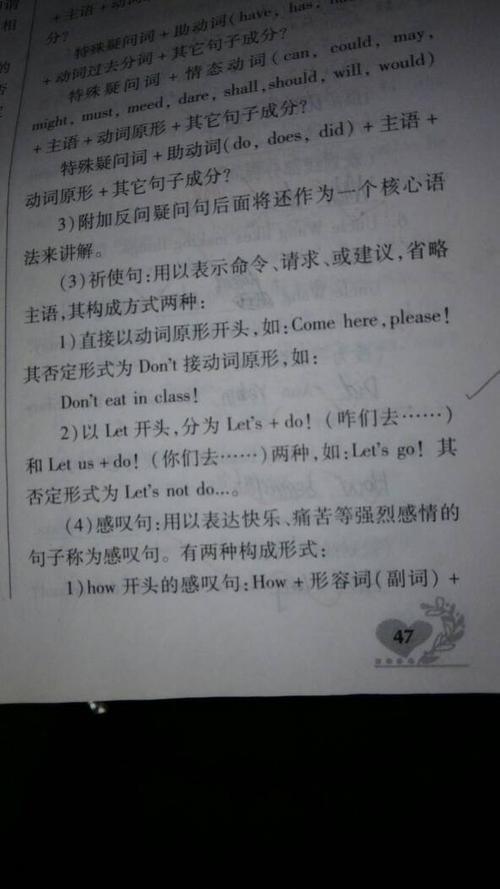 谓
+主语+动
相
分?
特殊疑问词+助动词(have, has,
+动词过去分词+其它句子成分?
特殊疑问词+情态动词(can, could, may,
might, must, meed, dare, shall,should, will, would)
+主语+动词原形+其它句子成分?
特殊疑问词+助动词(do, does, did)+主语+
动词原形+其它句子成分?
3)附加反问疑问句后面将还作为一个核心语
法来讲解。
(3)祈使句:用以表示命令、请求、或建议,省略
主语,其构成方式两种:
1)直接以动词原形开头,如:Come here,please!
其否定形式为 Don't 接动词原形,如:
Don't eat in class!
2)以 Let 开头,分为 Let's + do!(咱们去……)
和 Let us + do!(你们去……)两种,如:Let's go! 其
否定形式为 Let's not do…。
(4)感叹句:用以表达快乐、痛苦等强烈感情的
句子称为感叹句。有两种构成形式:
1)how 开头的感叹句:How + 形容词(副词) +
47